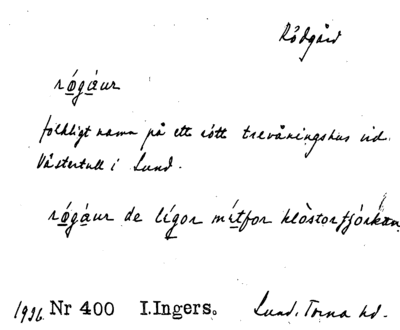 Rödgård
rǿgáur
folkligt namn på ett rött trevåningshus vid
Västertull i Lund.
rǿgáur de lígor mítfor klòstorfjórkan
1936. Nr 400 I.Ingers. Lund, Torna hd.